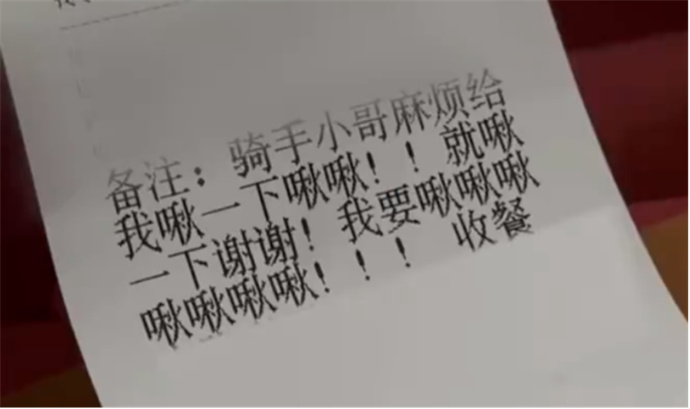 备注：骑手小哥麻烦给
我啾一下啾啾！！就啾
一下谢谢！我要啾啾啾
啾啾啾啾！！！ 收餐